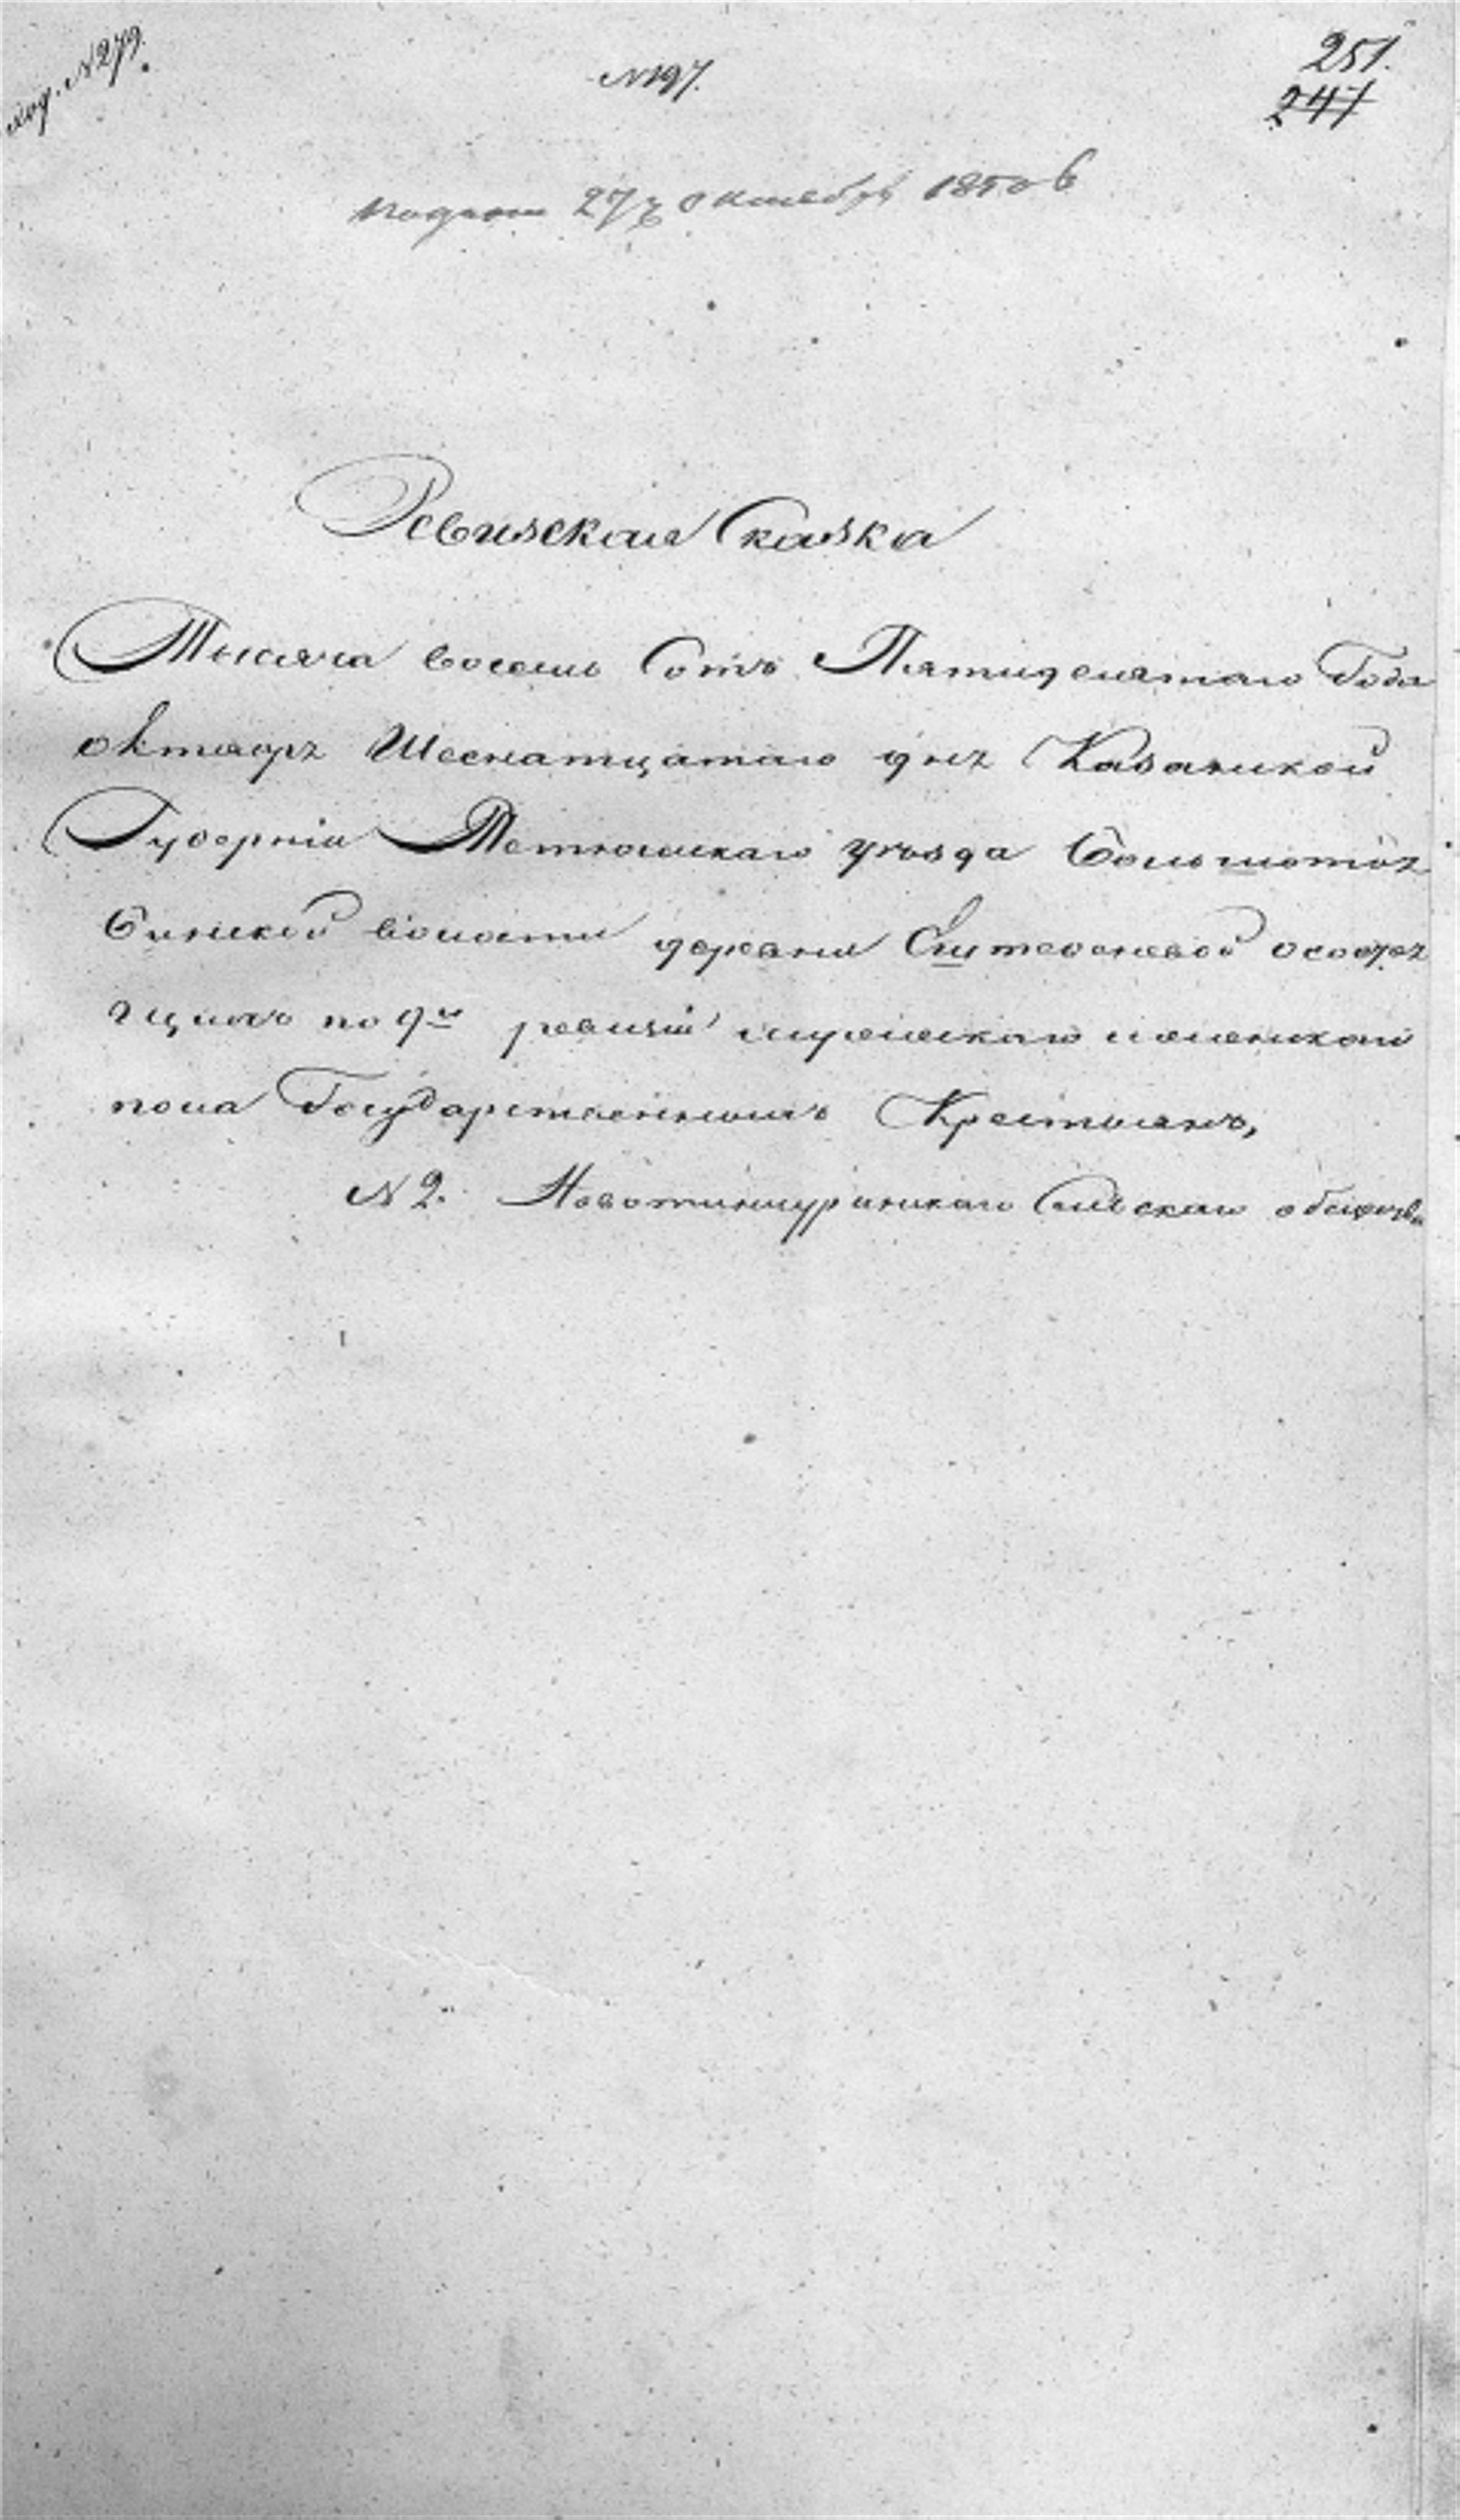 под. N 279.
N 197.
251.
247
Подана 27 октября 1850 г
Ревизская Сказка
Тысяча восемь Сотъ Пятидесятаго Года
октября Шеснатцатаго дня Казанской
Губернiи Тетюшскаго уезда
волости деревни о состоя
щихъ по 9й ревизiи мужескаго и женскаго
пола Государственныхъ Крестьянъ,
N 2. Сельскаго общества